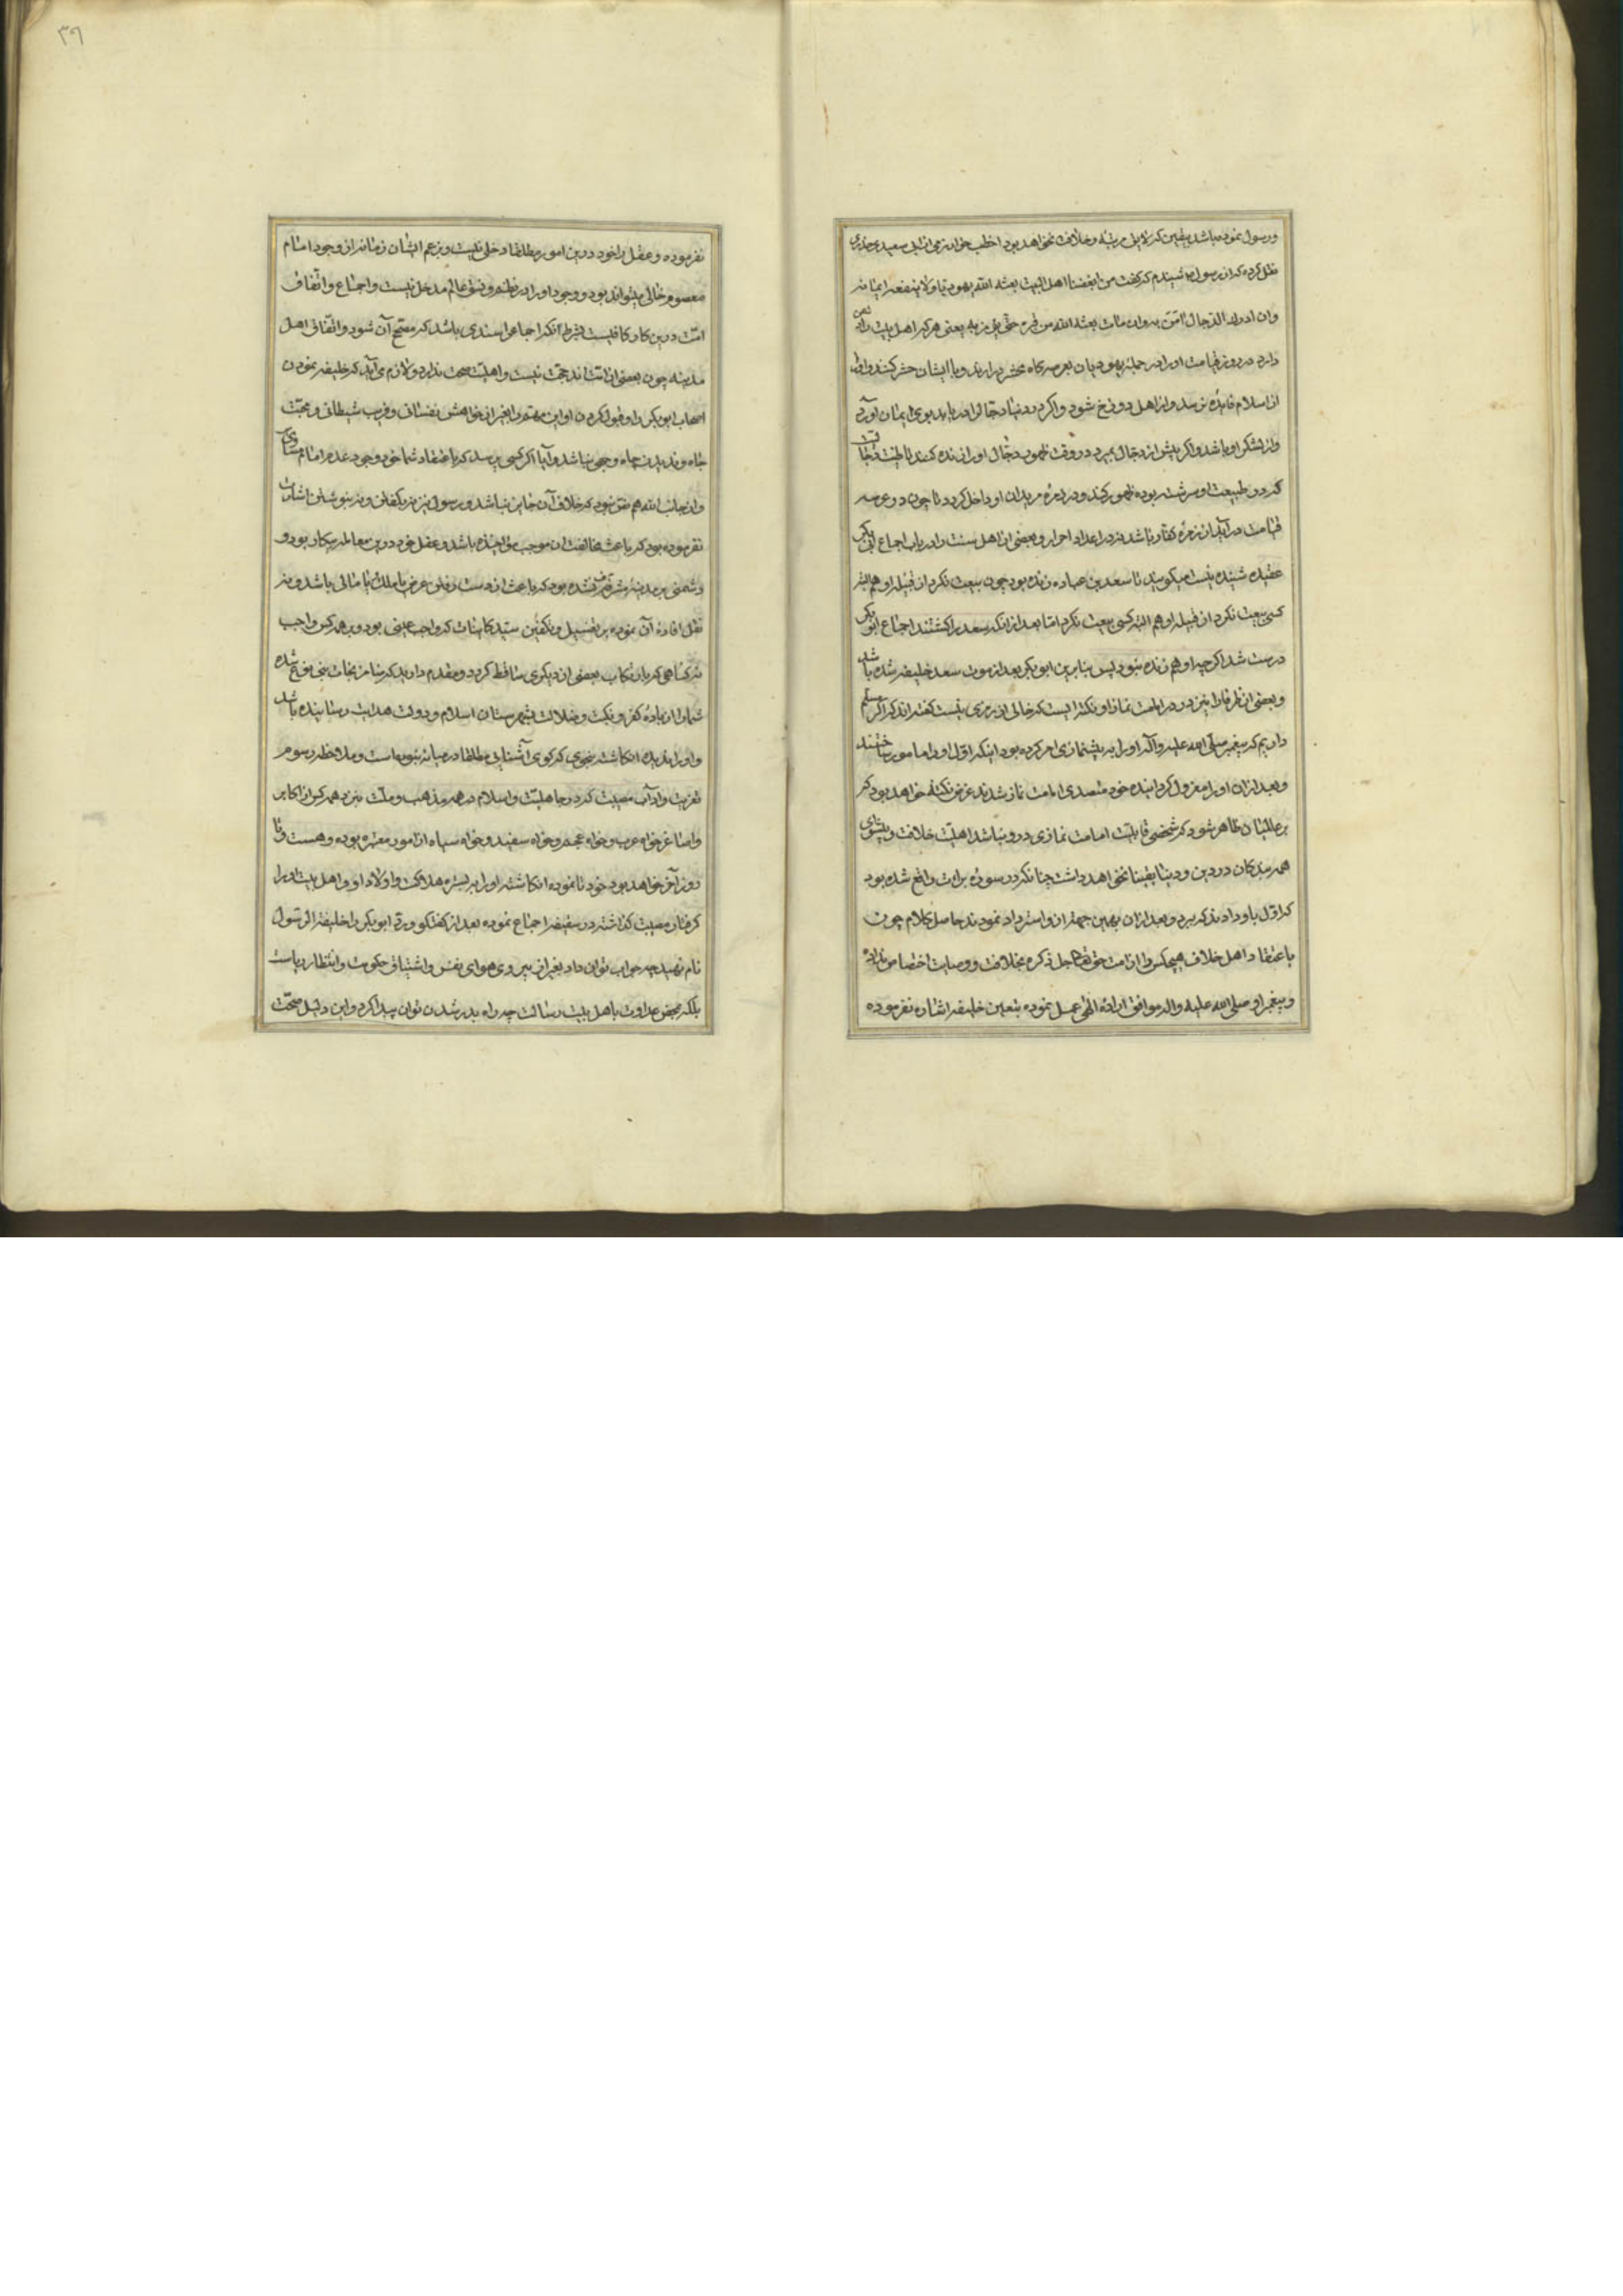 ورسول نموده باشد یقین که لایق مرتبه وخلافت نخواهد بود اخطب خوارزمی از ابی سعید خدری
نقل کرده که از رسول ص شنیدم که گفت من ابغضنا اهل البیت بعثه الله یهودیا ولا ینفعه ایمانه
وان ادرك الدجال امن به وان مات بعثه الله من قبره حتی یؤمن به یعنی هر که اهل بیت را دشمن
دارد در روز قیامت او را در جمله یهودیان بعرصه گاه محشر در ارند و با ایشان حشر کنند و او را
از اسلام فایده نرسد و از اهل دوزخ شود و اگر در دنیا دجال را دریابد بوی ایمان آورد
و از لشکر او باشد و اگر پیش از دجال بمیرد در وقت ظهور دجال او را زنده کنند تا
که در طبیعت او سرشته بوده ظهور کند و در زمره مریدان او داخل گردد تا چون در عرصه
قیامت در آید از زمره کفار باشد نه در اعداد احرار و بعضی از اهل سنت را در باب اجماع ابی بکر
عقیده شنیده نیست میگویند تا سعد بن عباده زنده بود چون بیعت نکرد از قبیله او هم البته
کسی بیعت نکرد از قبیله او هم البته کسی بیعت نکرد اما بعد از انکه سعد را کشتند اجماع ابو بکر
درست شد اگر چه او هم زنده نبود پس بنابرین ابو بکر بعد از موت سعد خلیفه شده باشد
و بعضی از ظرفا را نیز در امامت نماز او نکته ایست که خالی از رمزی نیست گفته اند که اگر مسلم
داریم که پیغمبر صلی الله علیه وآله او را به پیشنمازی امر کرده بود اینکه اول او را مامور ساختند
و بعد از ان او را معزول گردانیده خود متصدی امامت نماز شدند غرض نکته خواهد بود که
بر عالمیان ظاهر شود که شخصی قابلیت امامت نمازی درو نباشد اهلیت خلافت و پیشوای
همه بندکان در دین و دنیا یقینا نخواهد داشت چنانکه در سوره برات واقع شده بود
که اول باو دادند که ببرد و بعد ازان بهمین جهت ازو استرداد نمودند حاصل کلام چون
باعتقاد اهل خلاف هیچکس را از امت حق تعالی جل ذکره بخلافت و وصایت اختصاص نداده
و پیغمبر او صلی الله علیه واله موافق اراده الهی عمل نموده بتعیین خلیفه اشاره نفرموده
نفرموده و عقل را خود درین امور مطلقا دخلی نیست و بزعم ایشان زمانه از وجود امام
معصوم خالی میتواند بود و وجود او را در نظم و نسق عالم مدخل نیست و اجماع و اتفاق
امت درین کار کافیست بشرط آنکه اجماع را سندی باشد که مصحح آن شود و اتفاق اهل
مدینه چون بعضی از امت اند حجت نیست و اهلیت صحت ندارد و لازم می آید که خلیفه نمودن
اصحاب ابو بکر را و قبول کردن او این مهم را بغیر از خواهش نفسانی و فریب شیطانی و محبت
جاه و ندیدن چاه وجهی نباشد و آیا اگر کسی پرسد که باعتقاد شما خود وجود و عدم امام مساوی
و از جانب الله هم نص نبود که خلاف آن جایز نباشد و رسول نیز نه بگفتن و نه بنوشتن اشارت
نفرموده بود که باعث مخالفت ان موجب مواخذه باشد و عقل خود درین معامله بیکار بود و
دشمنی بر مدینه مشرفه نیامده بود که باعث از دست رفتن عرض یا ملك یا مالی باشد و نه
نقل افاده آن نموده بر تغسیل و تکفین سید کاینات که واجب عینی بود و بر همه کس واجب
نه کفاهی که بارتکاب بعضی از دیگری ساقط گردد و مقدم دارید که شما ز نجات
شما را از بادیه کفر و نکبت و ضلالت بشهرستان اسلام و دولت هدایت رسانیده باشد
و او را ندیده انکاشته بنحوی که کوی آشنایی مطلقا در میانه نبوده است و ملاحظه رسوم
تعزیت و آداب مصیبت که در جاهلیت و اسلام در همه مذهب و ملت نزد همه کس از اکابر
و اصاغر خواه عرب و خواه عجم و خواه سفید و خواه سیاه از امور معتبره بوده و هست و تا
روز آخر خواهد بود خود نا نموده انکاشته او را بر بستر هلاکت و اولاد او و اهل بیت او را
گرفتار مصیبت گذاشته در سقیفه اجتماع نموده بعد از گفتگو ابو بکر را خلیفه الرسول
نام نهید چه جواب توان داد بغیر از پیروی هوای نفس و اشتیاق حکومت و انتظار ریاست
بلکه محض عداوت با اهل بیت رسالت چه راه بدر شدن توان پیدا کرد و این دلیل صحت